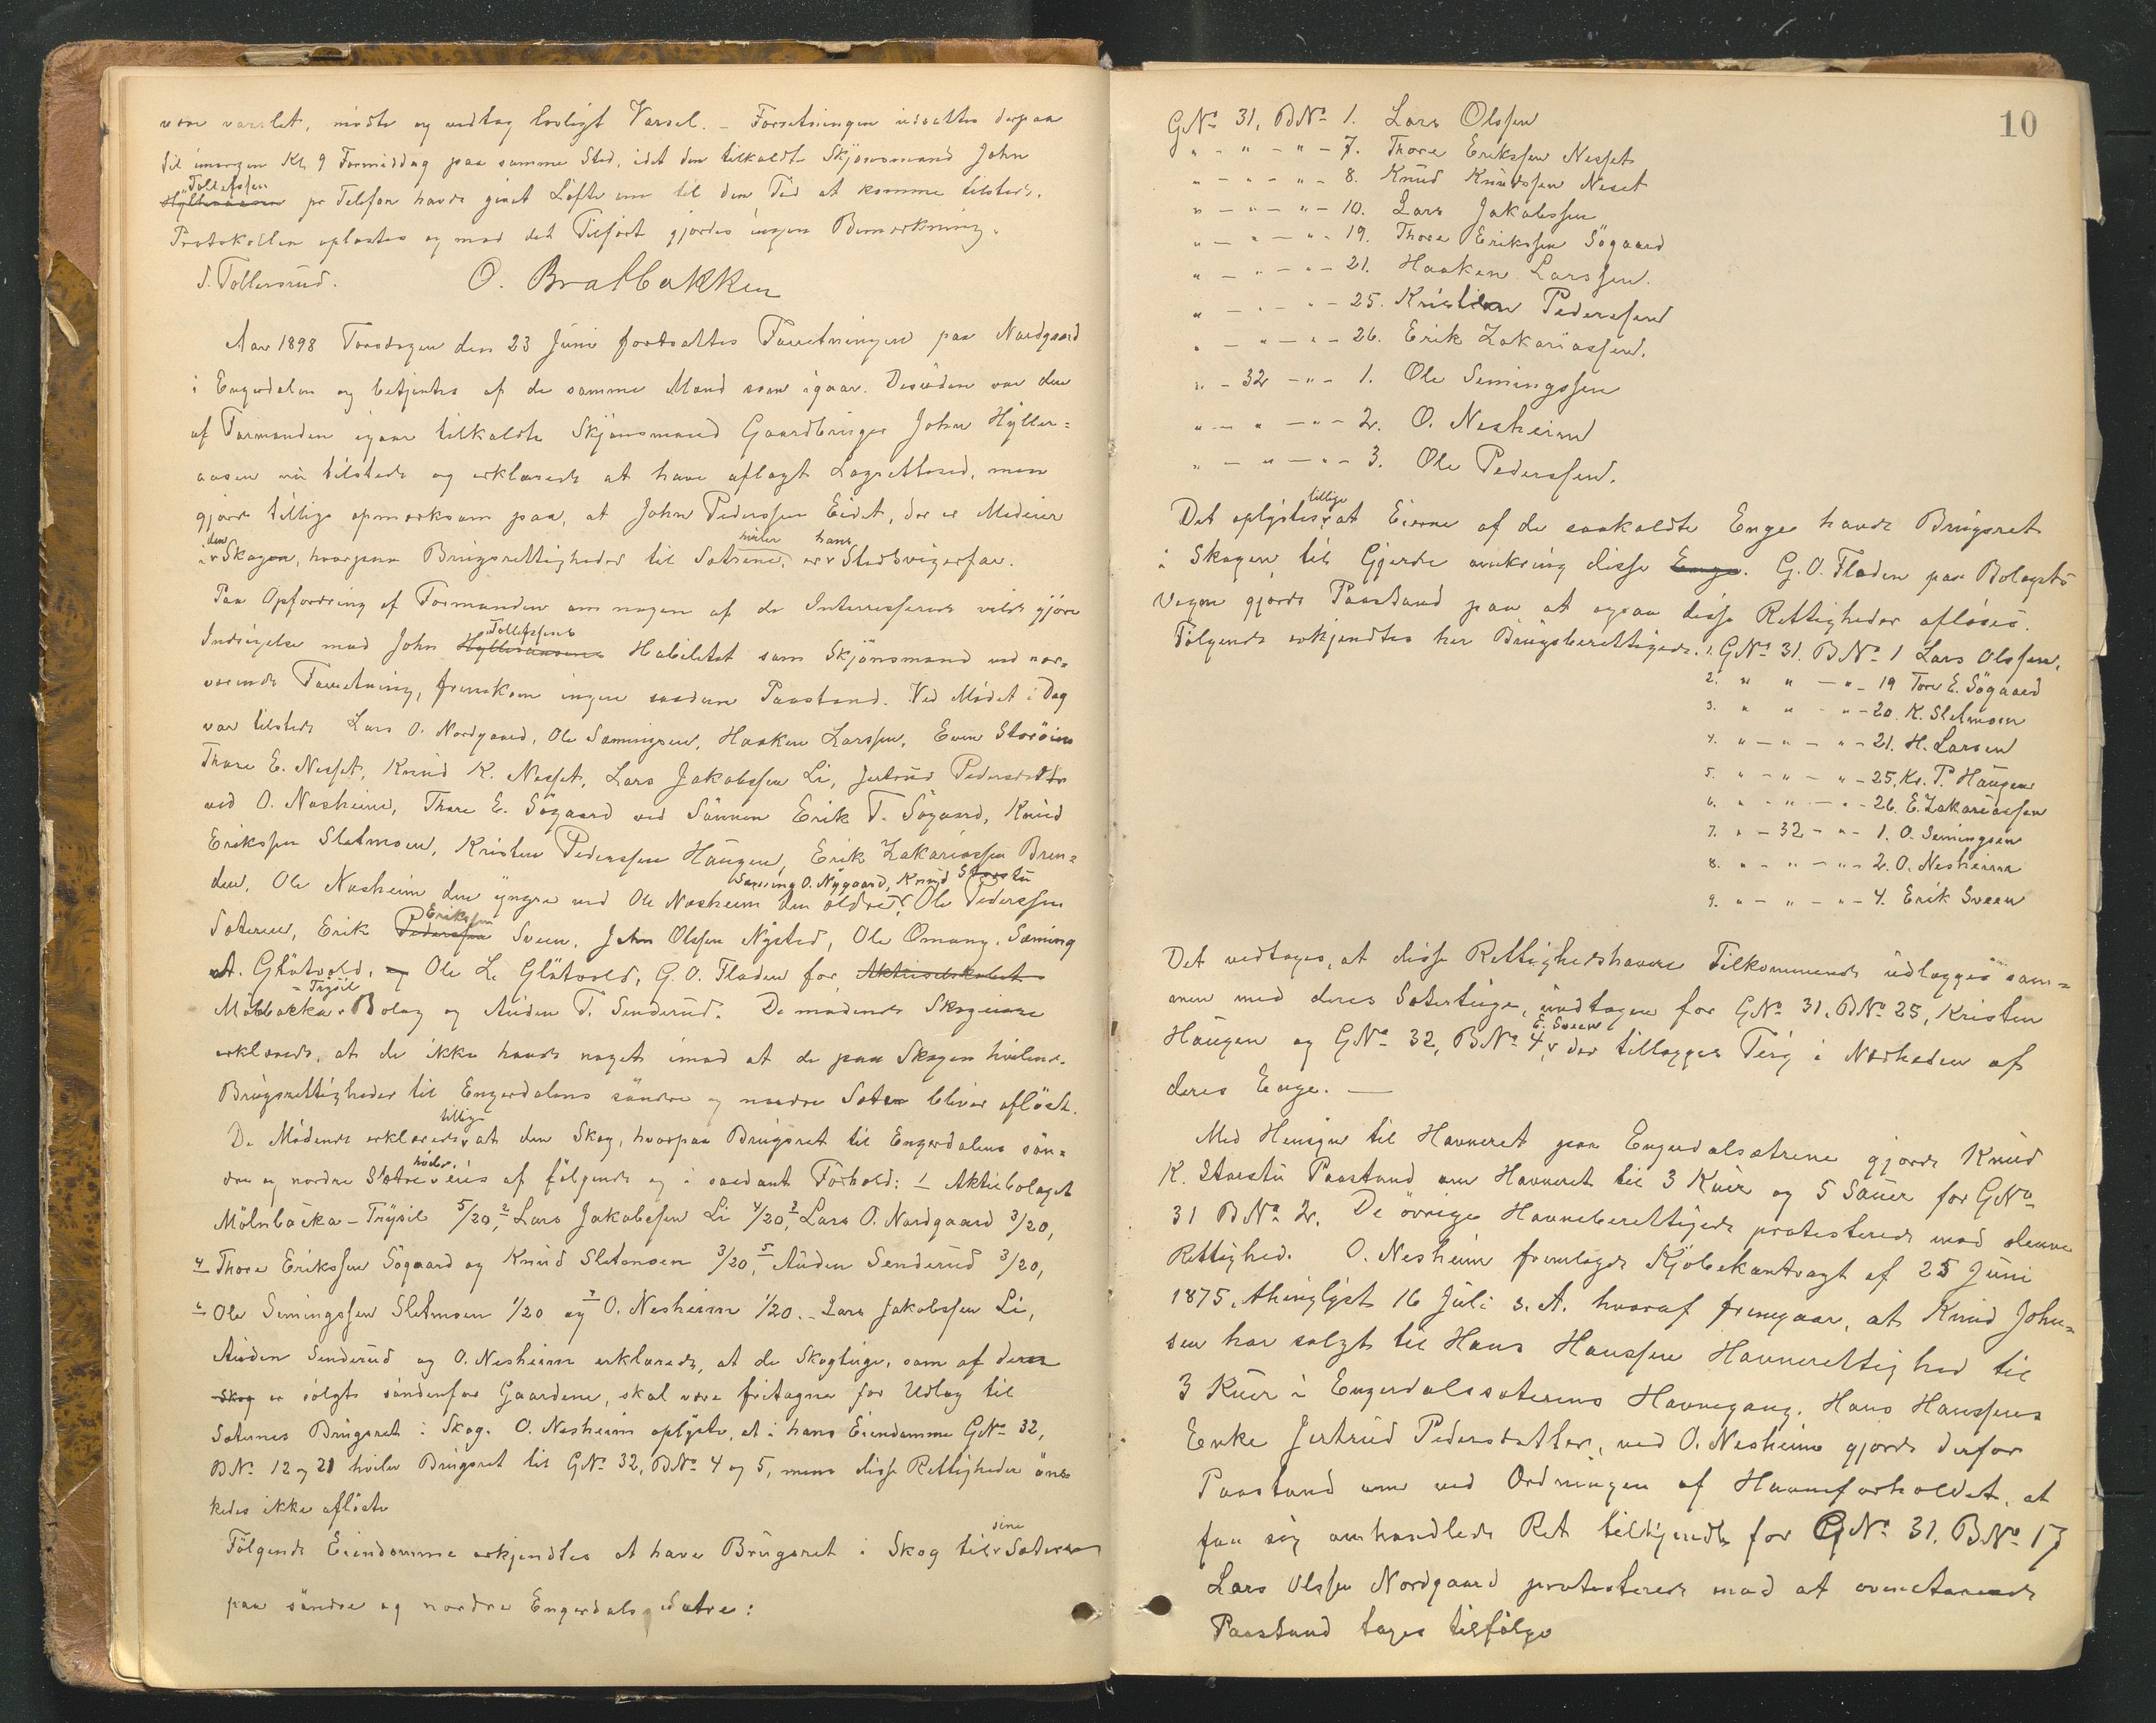 være varslet, mødte og vedtog lovligt Varsel. – Forretningen udsattes derpaa
til imorgen Kl 9 Formiddag paa samme Sted, idet den tilkaldte Skjønsmand John
Tollefssen
Hylleraasen pr Telefon havde givet Løfte om til den Tid at komme tilstede.
Protokollen oplæstes og mod det Tilførte gjordes ingen Bemærkning.
S. Tollersrud. O. Bratbakken
Aar 1898 Torsdagen den 23 Juni fortsattes Forretningen paa Nordgaard
i Engerdalen og betjentes af de samme Mænd som igaar. Desuden var den
af Formanden igaar tilkaldte Skjønsmand Gaardbruger John Hyller=
aasen nu tilstede og erklærede at have aflagt Lagrettesed, men
gjorde tillige opmærksom paa, at John Pederssen Eidet, der er Medeier
i den Skogen, hvorpaa Brugsrettigheder til Sætrene hviler, er hans Stedsvigerfar.
Paa Opfordring af Formanden om nogen af de Interesserede vilde gjøre
Indsigelse mod John Hylleraasens Tollefssens Habilitet som Skjønsmand ved nær=
værende Forretning, fremkom ingen saadan Paastand. Ved Mødet i Dag
var tilstede Lars O. Nordgaard, Ole Semingsen, Haaken Larssen, Even Storøien
Thore E. Nesset, Knud K. Nesset, Lars Jakobssen Li, Jertrud Pedersdatter
ved O. Nesheim, Thore E. Søgaard ved Sønnen Erik T. Søgaard, Knud
Erikssen Sletmoen, Kristen Pederssen Haugen, Erik Zakariassen Bren=
den, Ole Nesheim den yngre ved Ole Nesheim den ældre, Sæming O. Nygaard, Knud Storstu Ole Pederssen
Sæteren, Erik Pederssen Erikssen Sveen, John Olssen Nysted, Ole Omang, Sæming
A. Gløtvold, og Ole L. Gløtvold, G. O. Floden for Aktieselskabet
Mölnbacka-Trysil Bolag og Auden T. Senderud. De mødende Skogeiere
erklærede, at de ikke havde noget imod at de paa Skogen hvilende
Brugsrettigheder til Engerdalens søndre og nordre Sæter bliver afløst.
De Mødende erklærede tillige, at den Skog, hvorpaa Brugsret til Engerdalens søn=
dre og nordre Sætre hviler, eies af følgende og i saadant Forhold: 1 Aktiebolaget
Mölnbacka-Trysil 5/20, 2 Lars Jakobssen Li 4/20, 3 Lars O. Nordgaard 3/20,
4 Thore Erikssen Søgaard og Knud Sletmoen 3/20, 5 Auden Senderud 3/20,
6 Ole Semingssen Sletmoen 1/20 og 7 O. Nesheim 1/20. – Lars Jakobssen Li,
Auden Senderud og O. Nesheim erklærede, at de Skogteige, som af deres
Skog er solgte søndenfor Gaardene, skal være fritagne for Udlæg til
Sæternes Brugsret i Skog. O. Nesheim oplyste, at i hans Eiendomme GNo 32,
BNo 12 og 21 hviler Brugsret til GNo 32, BNo 4 og 5, mens disse Rettigheder øns=
kedes ikke afløste
Følgende Eiendomme erkjendtes at have Brugsret i Skog til sine Sætere
paa søndre og nordre Engerdalssætre:
10
GNo 31, BNo 1. Lars Olssen
" - " - " - 7. Thore Erikssen Nesset
" - " - " - 8. Knud Knudssen Neset
" - " - " - 10. Lars Jakobssen
" - " - " - 19. Thore Erikssen Søgaard
" - " - " - 21. Haaken Larssen.
" - " - " - 25. Kristen Pederssen
" - " - " - 26. Erik Zakariassen.
" - 32 - " - 1. Ole Semingssen
" - " - " - 2. O. Nesheim
" - " - " - 3. Ole Pederssen.
Det oplystes tillige, at Eierne af de saakaldte Enge havde Brugsret
i Skogen til Gjerde omkring disse Enge. G. O. Floden paa Bolagets
Vegne gjorde Paastand paa at ogsaa disse Rettigheder afløses.
Følgende erkjendtes her Brugsberettigede. 1. GNo 31. BNo 1 Lars Olssen,
2. " " - " - 19 Tore E. Søgaard
3. " " - " - 20. K. Sletmoen
4. " - " - " - 21. H. Larsen
5. " - " - " - 25. Kr. P. Haugen
6. " - " - " - 26. E. Zakariassen
7. " - 32 - " - 1. O. Semingsen
8. " - " - " - 2. O. Nesheim
9. " - " - " - 4. Erik Sveen
Det vedtoges, at disse Rettighedshavere Tilkommende udlægges sam=
men med deres Sæterteige, undtagen for GNo 31, BNo 25, Kristen
Haugen og GNo 32, BNo 4, E. Sveen der tillægges Teig i Nærheden af
deres Enge. —
Med Hensyn til Havneret paa Engerdalssætrene gjorde Knud
K. Storstu Paastand om Havneret til 3 Kuer og 5 Sauer for GNo
31 BNo 2. De øvrige Havneberettigede protesterede mod denne
Rettighed. O. Nesheim fremlagde Kjøbekontragt af 25 Juni
1875, thinglyst 16 Juli s. A. hvoraf fremgaar, at Knud John=
sen har solgt til Hans Hanssen Havnerettighed til
3 Kuer i Engerdalssæterens Havnegang. Hans Hanssens
Enke Jertrud Pedersdatter, ved O. Nesheim gjorde derfor
Paastand om ved Ordningen af Havneforholdet, at
faa sig omhandlede Ret tilkjendt for GNo 31. BNo 17
Lars Olssen Nordgaard protesterede mod at ovenstaaende
Paastand tages tilfølge